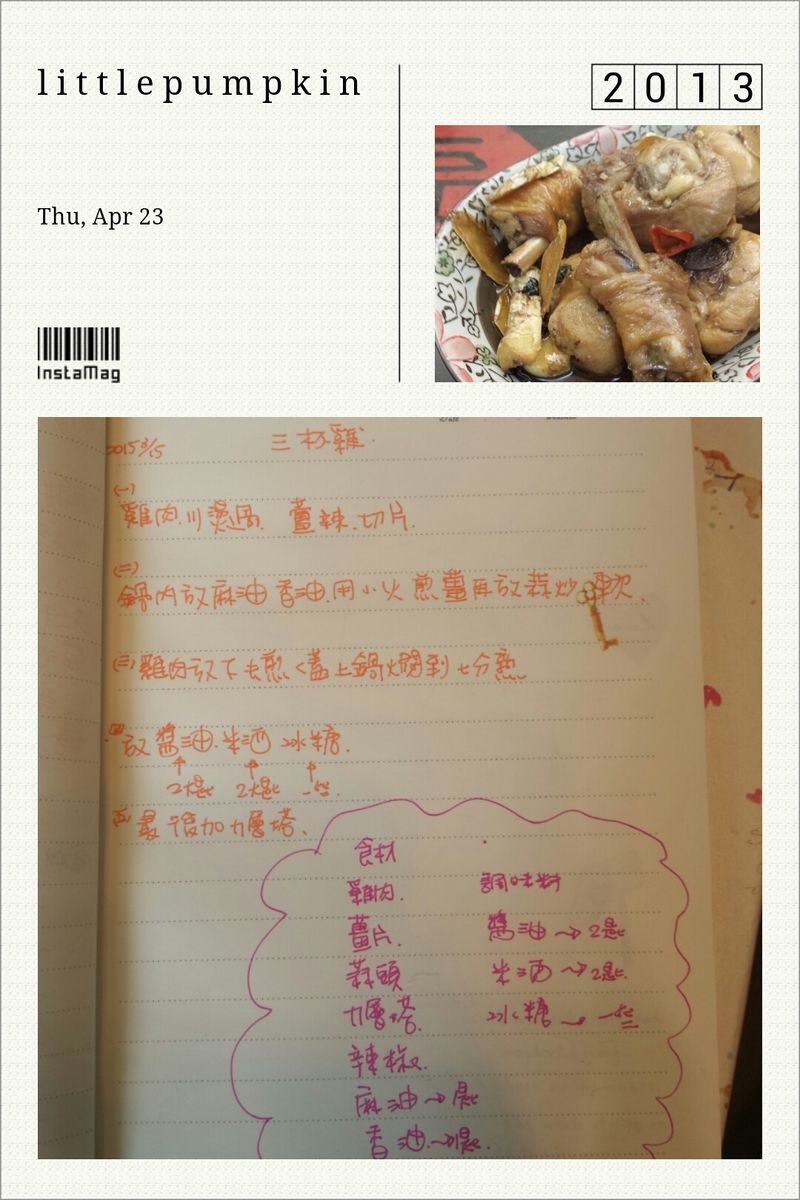 littlepumpkin
2013
Thu, Apr 23
InstaMag
2015 3/15 三杯雞.
(一)
雞肉川燙過. 薑辣.切片.
(二)
鍋內放麻油 香油.用小火煎薑再放蒜炒 軟.
(三) 雞肉放下去煎<蓋上鍋火燜到七分熟
(四)放醬油.米酒 冰糖.
2大匙 2大匙 一些.
(五)最後加九層塔.
食材
雞肉. 調味料
薑片. 醬油→2匙
蒜頭 米酒→2匙.
九層塔. 冰糖→一些
辣椒.
麻油→1匙
香油.→1匙.